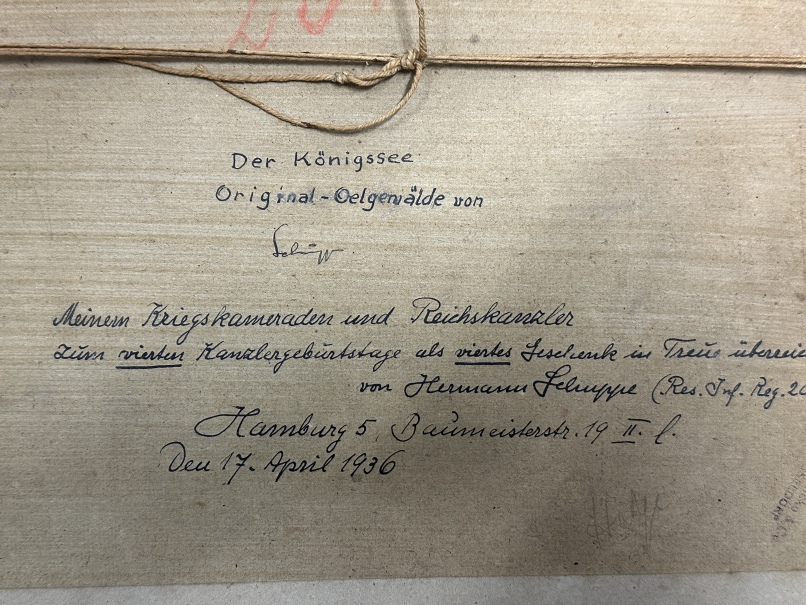 Der Königssee
Original-Oelgemälde von
Meinem Kriegskameraden und Reichskanzler
zum vierten Kanzlergeburtstage als viertes Geschenk in Treue
von Hermann Schuppe (Res. Inf. Reg.
Hamburg 5, Baumeisterstr. 19 II. l.
Den 17. April 1936